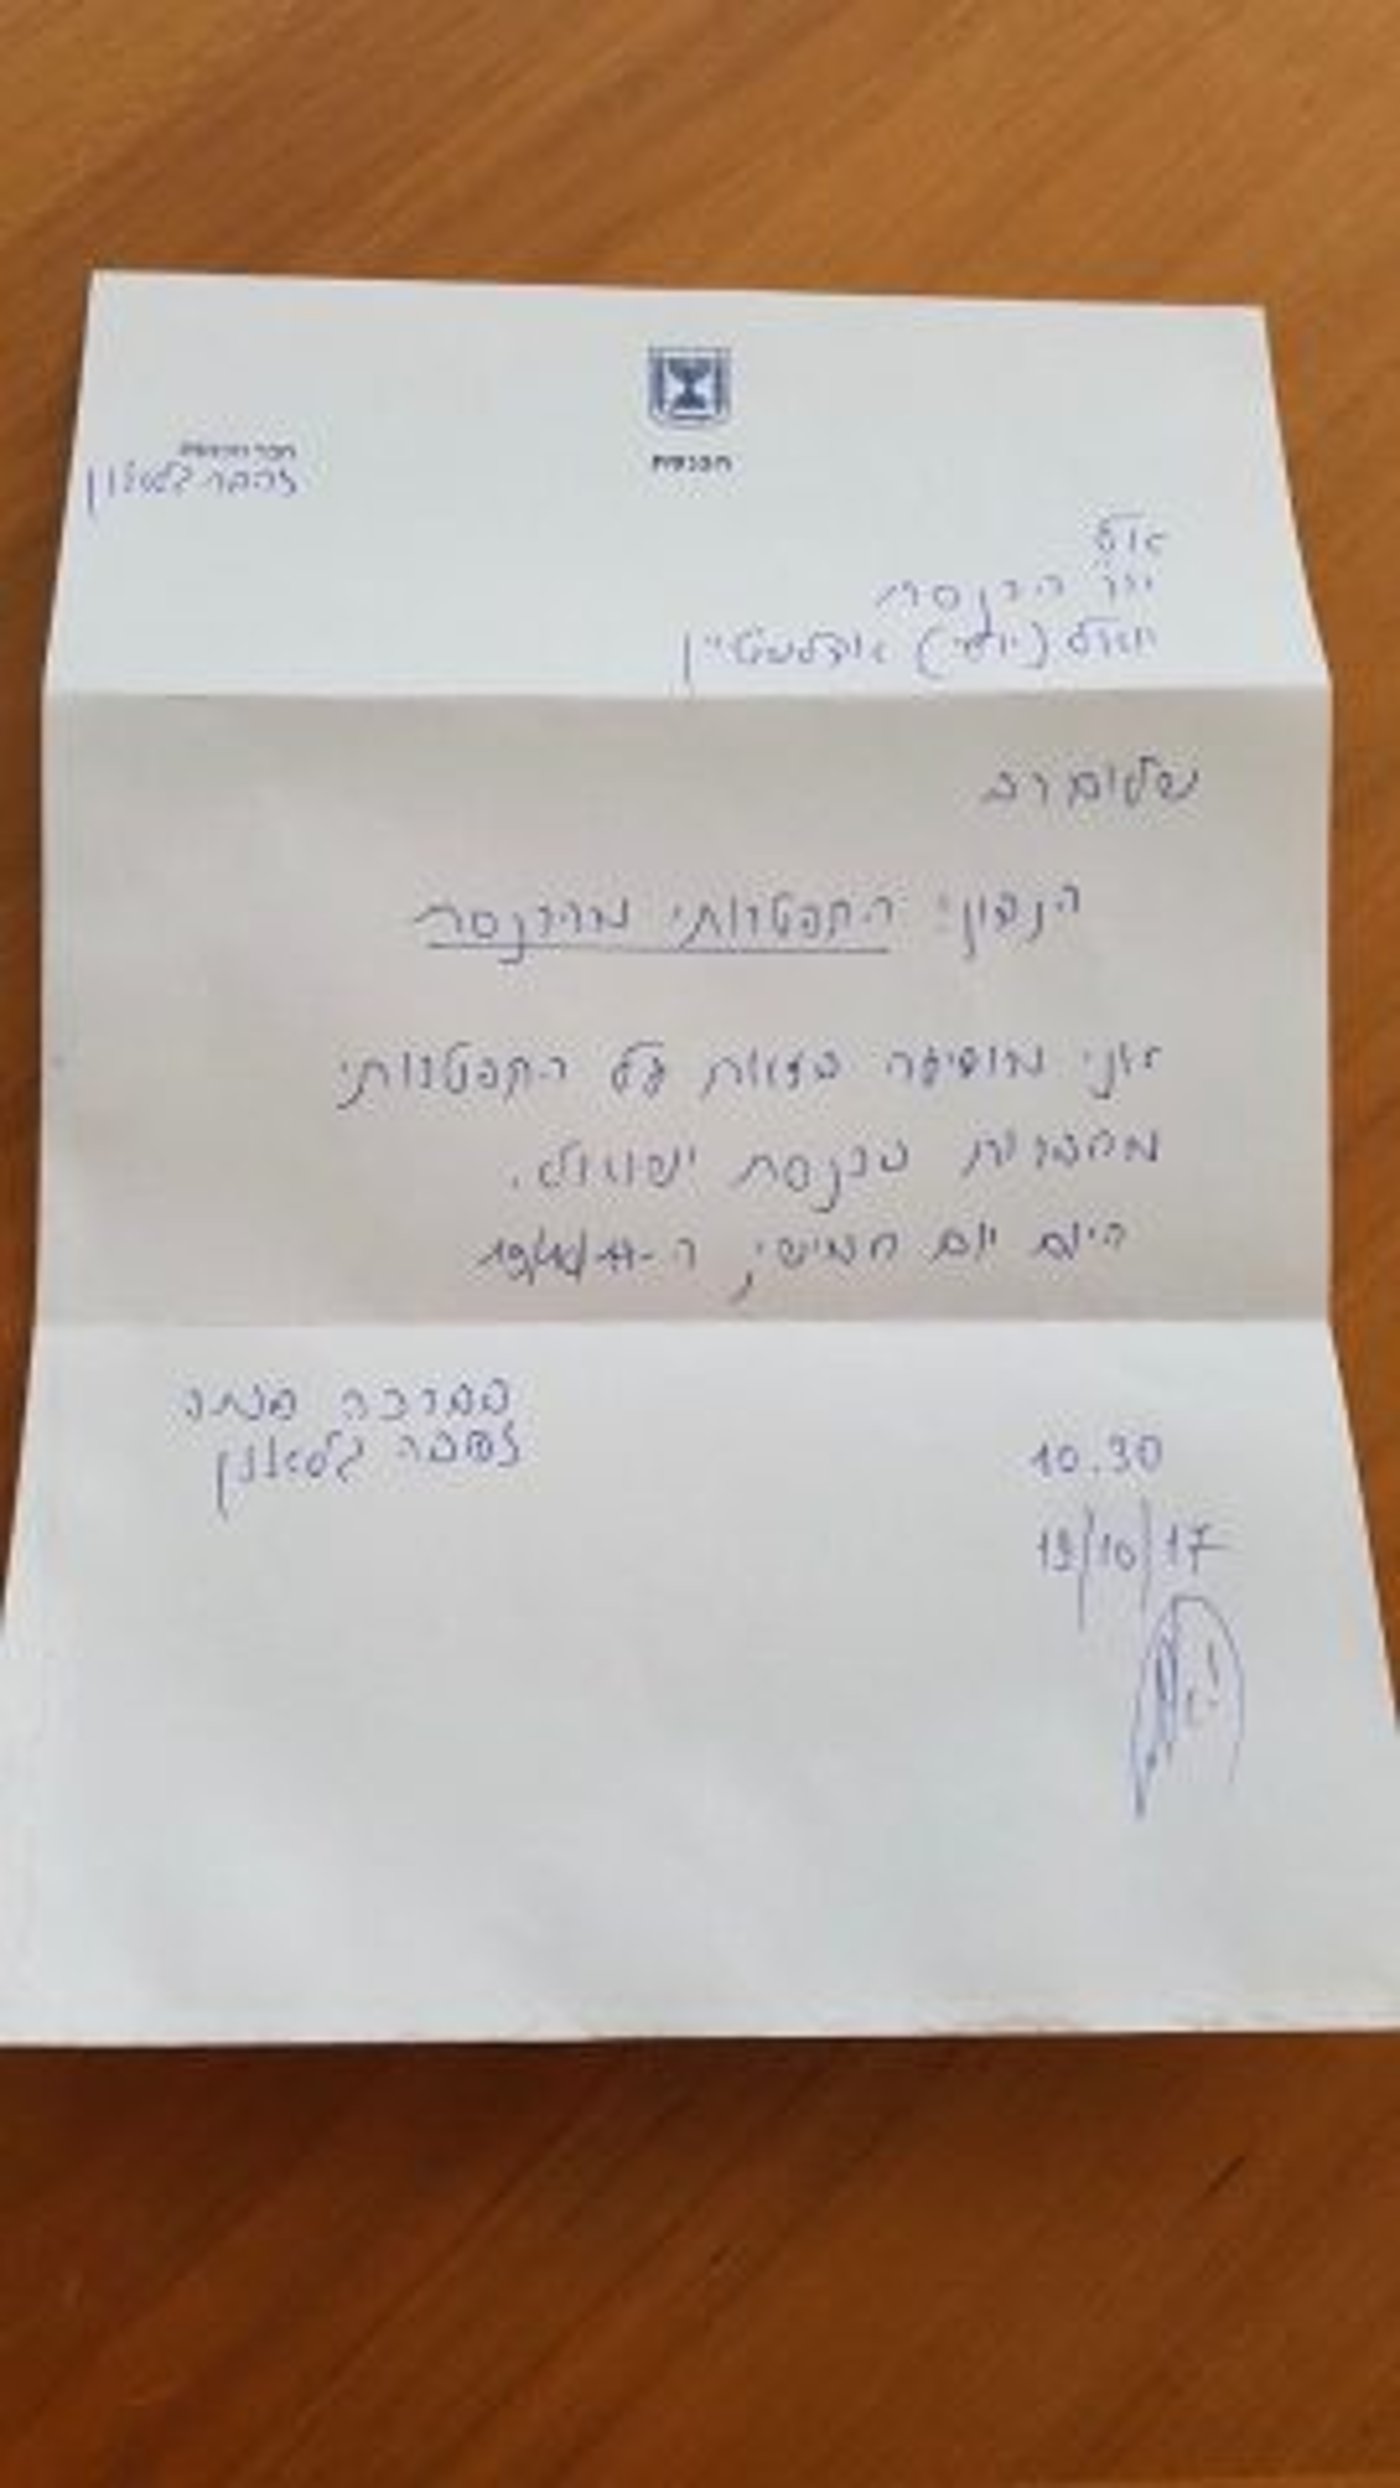 הכנסת
חבר הכנסת
זהבה גלאון
אל
יו"ר הכנסת
יואל (יולי) אדלשטיין
שלום רב
הנדון: התפטרותי מהכנסת
אני מודיעה בזאת על התפטרותי
מחברות בכנסת ישראל.
היום יום חמישי, ה-19/10/17
בברכה
זהבה גלאון
10.30
19/10/17